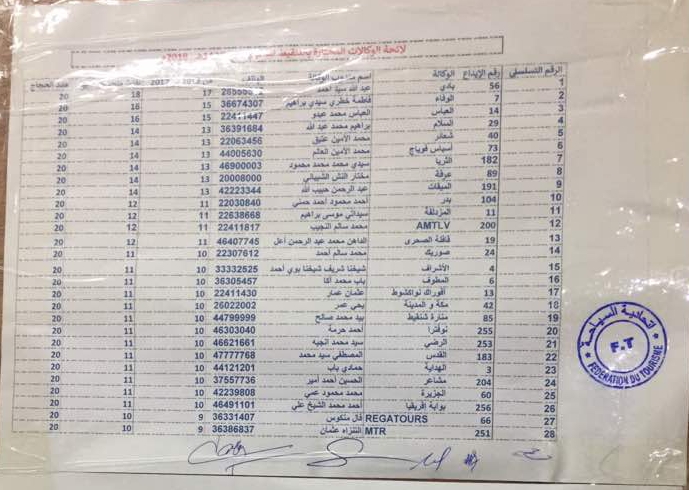 لائحة الوكالات المختارة
الرقم التسلسلي رقم الإيداع الوكالة اسم صاحب الوكالة الهاتف عدد الحجاج
1 56 بادي عبد الله سيد أحمد 17 18 20
2 7 الوفاء فاطمة خطري سيدي براهيم 36674307 15 16 20
3 14 العباس العباس محمد عبدو 22411447 15 16 20
4 29 السلام براهيم محمد عبد الله 36391684 13 14 20
5 40 شعائر محمد الأمين عتيق 22063456 13 14 20
6 73 أسياس فوياج محمد الأمين العالم 44005630 13 14 20
7 182 الثريا سيدي محمد محمد محمود 46900003 13 14 20
8 89 عرفة مختار النش الشيباني 20008000 13 14 20
9 191 الميقات عبد الرحمن حبيب الله 42223344 13 14 20
10 104 بدر أحمد محمود أحمد حمني 22030840 11 12 20
11 11 المزدلفة سيداتي موسى براهيم 22638668 11 12 20
12 200 AMTLV محمد سالم النجيب 22411817 11 12 20
13 19 قافلة الصحرى الداهن محمد عبد الرحمن أعل 46407745 11 12 20
14 24 صوريك محمد سالم أحمد 22307612 10 11 20
15 4 الأشراف شيخنا شريف شيخنا بوي أحمد 33332525 10 11 20
16 6 المطوف باب محمد أكا 36305457 10 11 20
17 13 أفوراك نواكشوط عثمان عمار 22411430 10 11 20
18 42 مكة و المدينة يحي عمر 26022002 10 11 20
19 85 منارة شنقيط بيد محمد صالح 44799999 10 11 20
20 255 نوفترا أحمد حرمة 46303040 10 11 20
21 253 الرضي سيد محمد انجيه 46621661 10 11 20
22 183 القدس المصطفي سيد محمد 47777768 10 11 20
23 3 الهداية حمادي باب 44121201 10 11 20
24 204 مشاعر الحسين أحمد أمير 37557736 10 11 20
25 60 الجزيرة محمد محمود عمي 42239808 10 11 20
26 256 بوابة إفريقيا أحمد محمد الشيخ علي 46491101 10 11 20
27 66 REGATOURS فال منكوس 36331407 9 10 20
28 251 MTR النتزاه عثمان 36386837 9 10 20
اتحادية السياحة
F.T
FEDERATION DU TOURISME